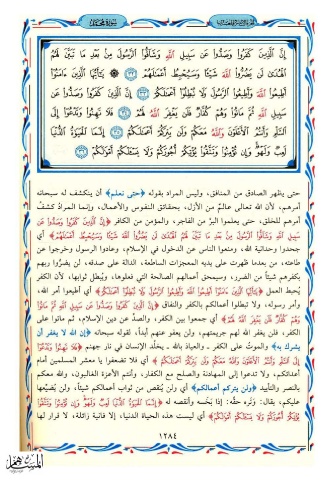 سورة محمد
إِنَّ الَّذِينَ كَفَرُوا وَصَدُّوا عَن سَبِيلِ اللَّهِ وَشَاقُّوا الرَّسُولَ مِن بَعْدِ مَا تَبَيَّنَ لَهُمُ
الْهُدَىٰ لَن يَضُرُّوا اللَّهَ شَيْئًا وَسَيُحْبِطُ أَعْمَالَهُمْ ﴿٣٢﴾ يَا أَيُّهَا الَّذِينَ آمَنُوا
أَطِيعُوا اللَّهَ وَأَطِيعُوا الرَّسُولَ وَلَا تُبْطِلُوا أَعْمَالَكُمْ ﴿٣٣﴾ إِنَّ الَّذِينَ كَفَرُوا وَصَدُّوا عَن
سَبِيلِ اللَّهِ ثُمَّ مَاتُوا وَهُمْ كُفَّارٌ فَلَن يَغْفِرَ اللَّهُ لَهُمْ ﴿٣٤﴾ فَلَا تَهِنُوا وَتَدْعُوا إِلَى
السَّلْمِ وَأَنتُمُ الْأَعْلَوْنَ وَاللَّهُ مَعَكُمْ وَلَن يَتِرَكُمْ أَعْمَالَكُمْ ﴿٣٥﴾ إِنَّمَا الْحَيَاةُ الدُّنْيَا
لَعِبٌ وَلَهْوٌ وَإِن تُؤْمِنُوا وَتَتَّقُوا يُؤْتِكُمْ أُجُورَكُمْ وَلَا يَسْأَلْكُمْ أَمْوَالَكُمْ ﴿٣٦﴾
حتى يظهر الصادق من المنافق، وليس المراد بقوله ﴿حتى نعلم﴾ أن ينكشف له سبحانه
أمرهم، لأن الله تعالى عالمٌ من الأزل، بحقائق النفوس والأعمال، وإنما المرادُ كشفُ
أمرهم للخلق، حتى يعلموا البرَّ من الفاجر، والمؤمن من الكافر ﴿إِنَّ الَّذِينَ كَفَرُوا وَصَدُّوا عَن
سَبِيلِ اللَّهِ وَشَاقُّوا الرَّسُولَ مِن بَعْدِ مَا تَبَيَّنَ لَهُمُ الْهُدَىٰ لَن يَضُرُّوا اللَّهَ شَيْئًا وَسَيُحْبِطُ أَعْمَالَهُمْ﴾ أي
جحدوا وحدانية الله، ومنعوا الناس عن الدخول في الإسلام، وعادوا الرسول وخرجوا عن
طاعته، من بعدما ظهرت على يديه المعجزات الساطعة، الدالة على صدقه، لن يضرُّوا ربهم
بكفرهم شيئاً من الضرر، وسيمحق أعمالهم الصالحة التي فعلوها، ويُبطل ثوابها، لأن الكفر
يُحبط العمل ﴿يَا أَيُّهَا الَّذِينَ آمَنُوا أَطِيعُوا اللَّهَ وَأَطِيعُوا الرَّسُولَ وَلَا تُبْطِلُوا أَعْمَالَكُمْ﴾ أي أطيعوا أمر الله،
وأمر رسوله، ولا تبطلوا أعمالكم بالكفر والنفاق ﴿إِنَّ الَّذِينَ كَفَرُوا وَصَدُّوا عَن سَبِيلِ اللَّهِ ثُمَّ مَاتُوا
وَهُمْ كُفَّارٌ فَلَن يَغْفِرَ اللَّهُ لَهُمْ﴾ أي جمعوا بين الكفر، والصدِّ عن دين الإسلام، ثم ماتوا على
الكفر، فلن يغفر الله لهم جريمتهم، ولن يعفو عنهم أبداً، لقوله سبحانه ﴿إن الله لا يغفر أن
يشرك به﴾ والموتُ على الكفر ـ والعياذ بالله ـ يخلِّد الإنسان في نار جهنم ﴿فَلَا تَهِنُوا وَتَدْعُوا
إِلَى السَّلْمِ وَأَنتُمُ الْأَعْلَوْنَ وَاللَّهُ مَعَكُمْ وَلَن يَتِرَكُمْ أَعْمَالَكُمْ﴾ أي فلا تضعفوا يا معشر المسلمين أمام
أعدائكم، ولا تدعوا إلى المهادنة والصلح مع الكفار، وأنتم الأعزة الغالبون، والله معكم
بالنصر والتأييد ﴿ولن يتركم أعمالكم﴾ أي ولن يُنقص من ثواب أعمالكم شيئاً، ولن يُضيِّعها
عليكم، يقال: وَتَره حقَّه: إذا بخسه وأنقصه له ﴿إِنَّمَا الْحَيَاةُ الدُّنْيَا لَعِبٌ وَلَهْوٌ وَإِن تُؤْمِنُوا وَتَتَّقُوا
يُؤْتِكُمْ أُجُورَكُمْ وَلَا يَسْأَلْكُمْ أَمْوَالَكُمْ﴾ أي ليست هذه الحياة الدنيا، إلا فانية زائلة، لا قرار لها
١٢٨٤